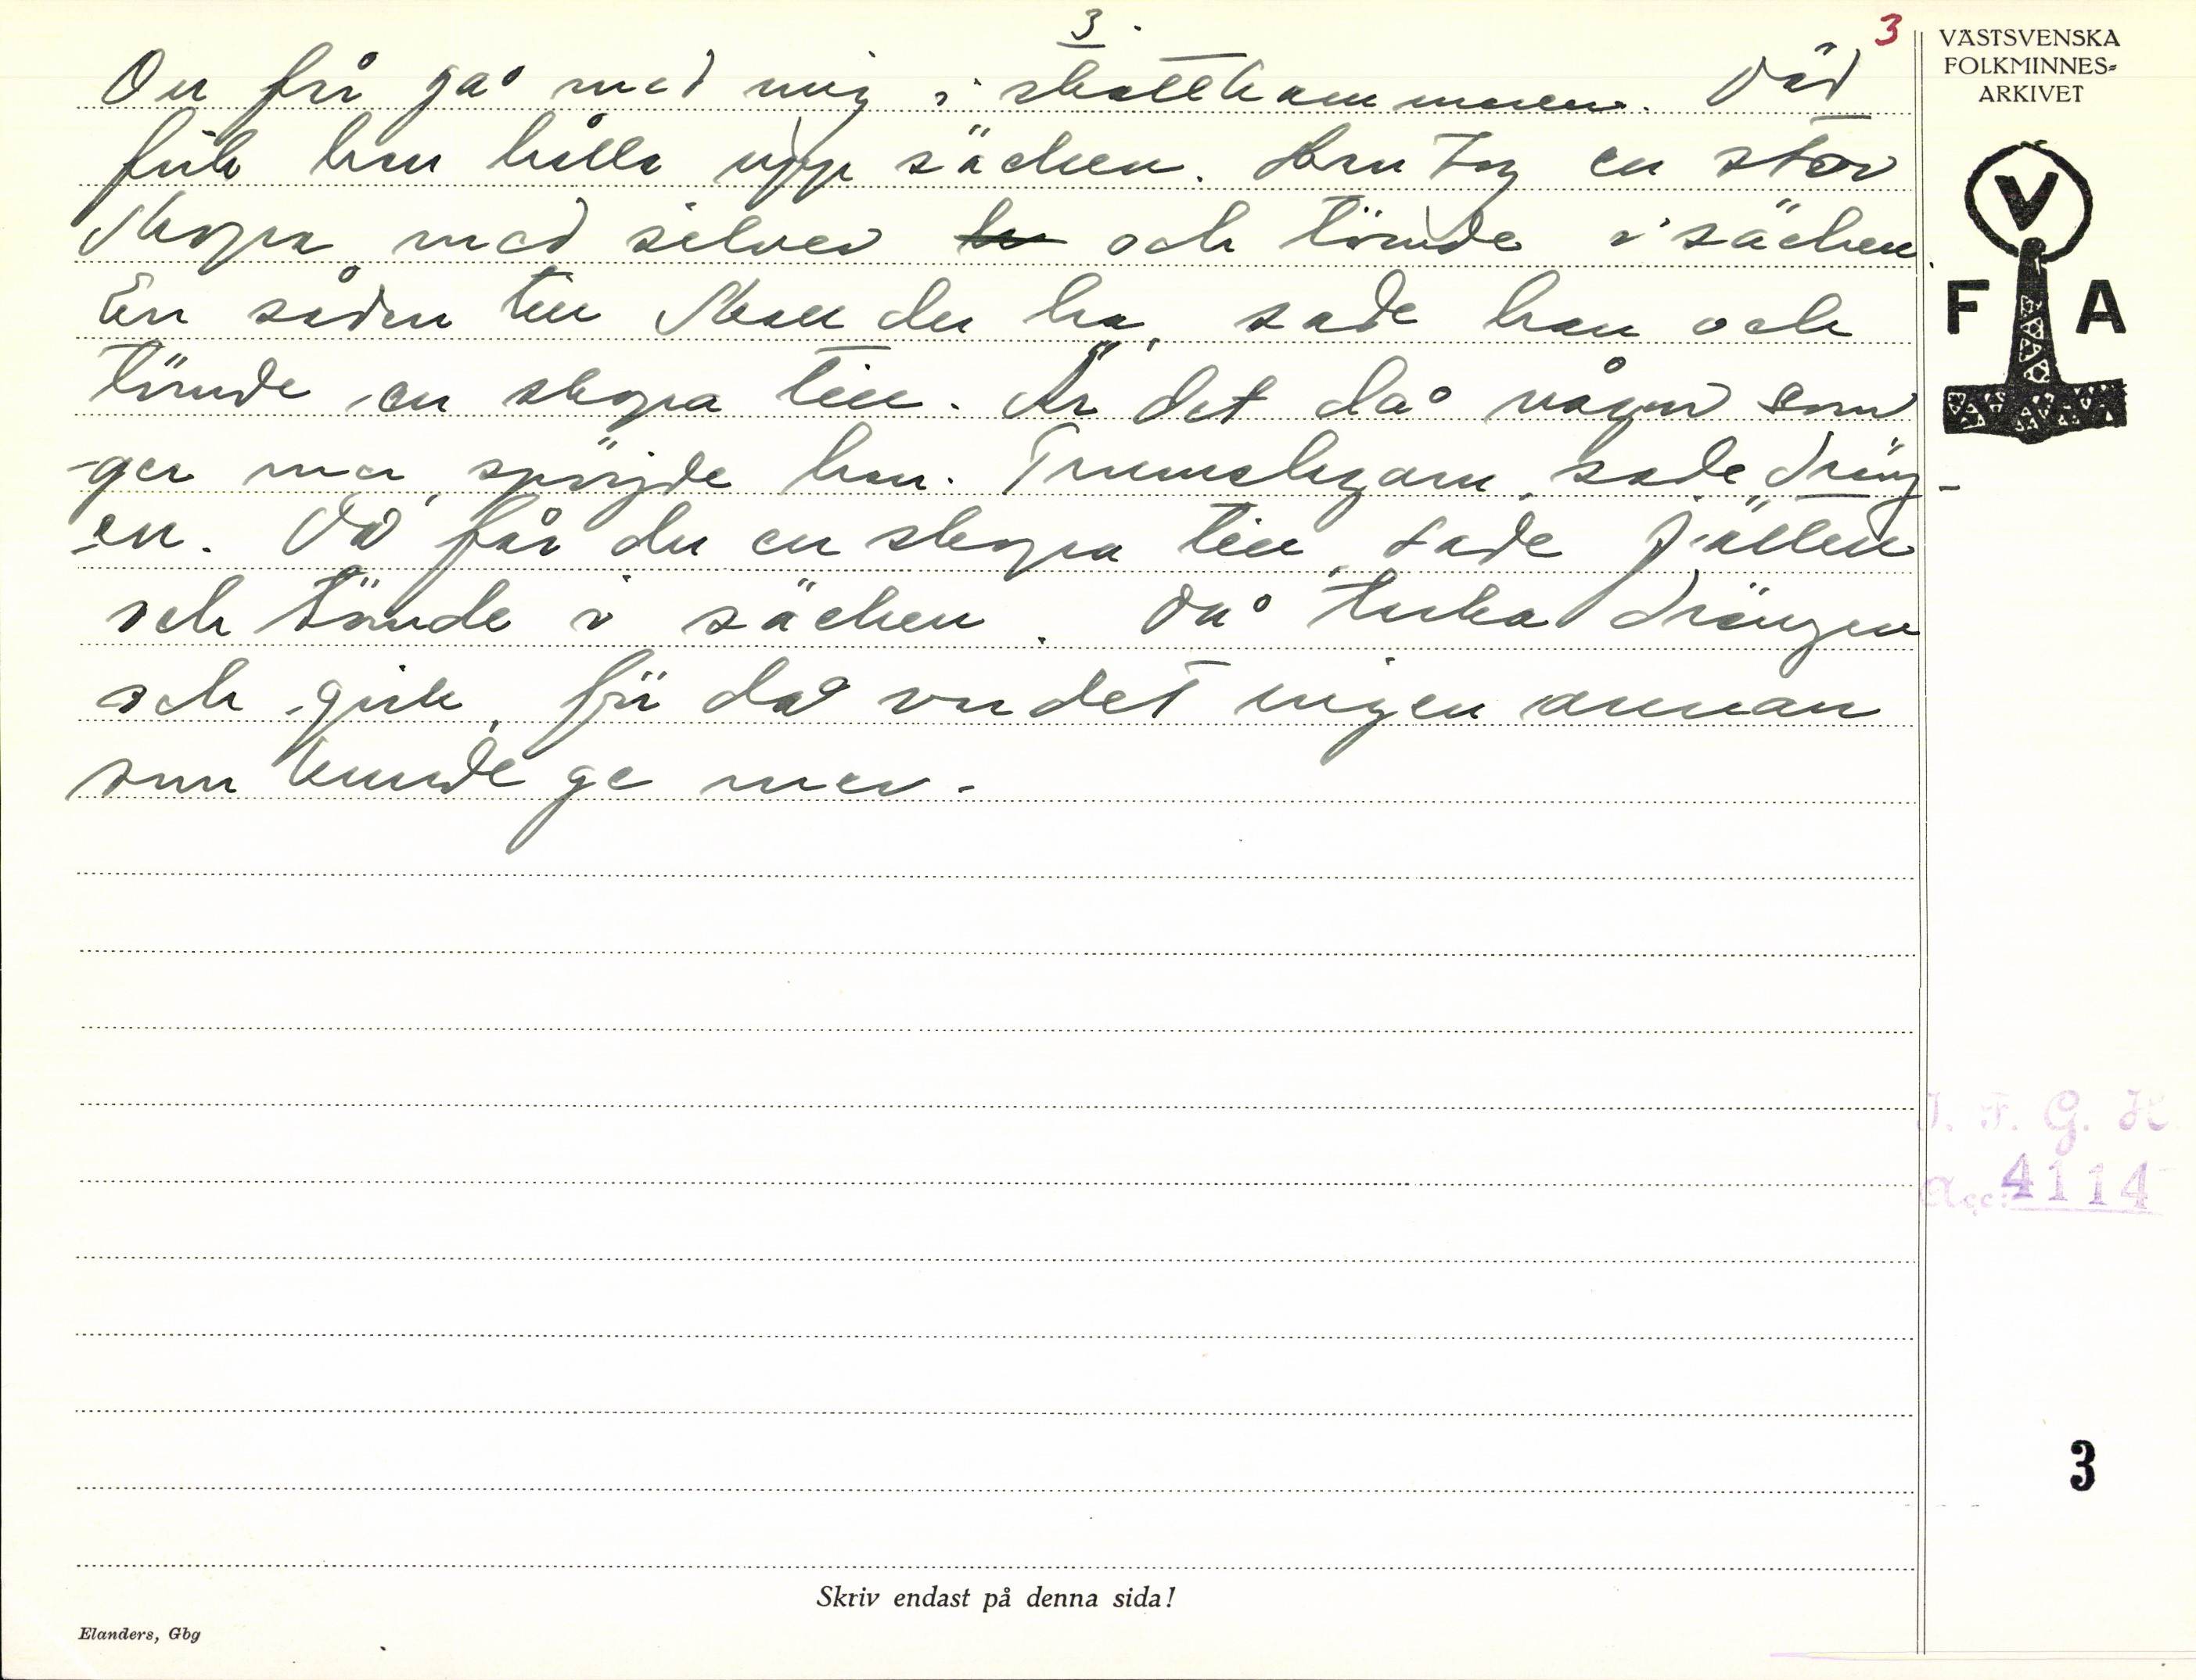 3.
3
Du får gå med mig i skattkammaren. Där
fick han hålla upp säcken. Han tog en stor
skopa med silver och tömde i säcken.
En sådan till skall du ha, sade han och
tömde en skopa till. Är det då någon som
ger mer, spörjde han. Trumslagarn, sade dräng-
en. Då får du en skopa till, sade jätten
och tömde i säcken. Då tacka drängen
och gick, för då var det ingen annan
som kunde ge mer.
VÄSTSVENSKA
FOLKMINNES=
ARKIVET
V
F A
I. F. G. H
Acc: 4114
3
Skriv endast på denna sida!
Elanders, Gbg